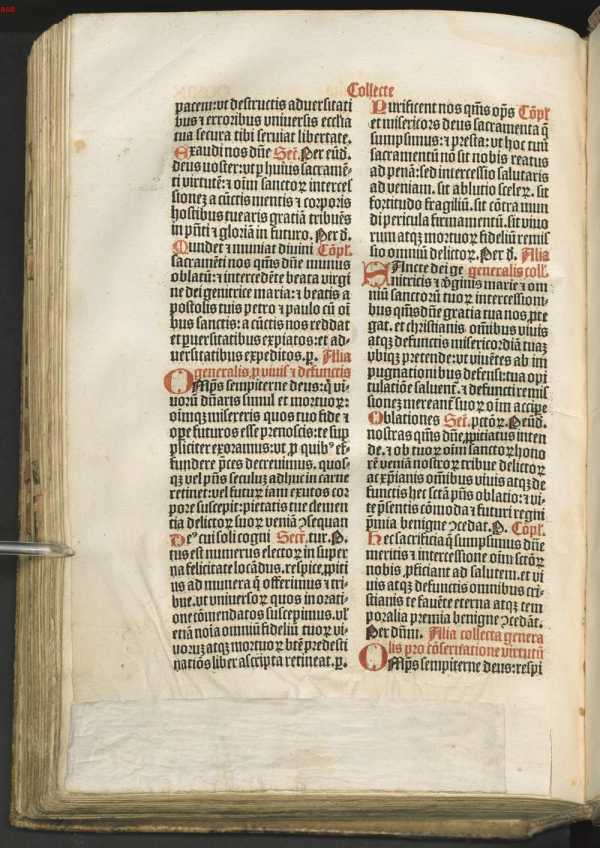 Collecte
pacem: vt destructis aduersitati
bus ⁊ erroribus vniuersis eccl'ia
tua secura tibi seruiat libertate.
Exaudi nos dn̄e Secr̄. Per eūd.
deus noster: vt ꝑ huius sacramē-
ti virtutē: ⁊ oīm sanctoꝝ interces
sionez a cūctis mentis ⁊ corporis
hostibus tuearis gratiā tribuēs
in p̄n̄ti ⁊ gloriā in futuro. Per d.
Mundet ⁊ muniat diuini Cōpl'.
sacramēti nos qs̄ms dn̄e munus
oblatū: ⁊ intercedēte beata virgi
ne dei genitrice maria: ⁊ beatis a
postolis tuis petro ⁊ paulo cū oī
bus sanctis: a cūctis nos reddat
et ꝑuersitatibus expiatos: et ad-
uersitatibus expeditos. p. Alia
generalis ꝓ viuis ⁊ defunctis
OMp̄s sempiterne deus: q̄ vi
uorū dn̄aris simul et mortuoꝝ:
oīmqꝫ misereris quos tuo fide ⁊
oꝑe futuros esse prenoscis: te sup
pliciter exoramus: vt ꝓ quibꝰ ef-
fundere p̄ces decreuimus. quos-
qꝫ vel pn̄s seculuz adhuc in carne
retinet: vel futurꝫ iam exutos cor
pore suscepit: pietatis tue clemen
tia delictoꝝ suoꝝ veniā ꝯsequan
Deꝰ cui soli cogni Secr̄. tur. P.
tus est numerus electoꝝ in super
na felicitate locādus. respice ꝓpiti
us ad munera q̄ offerimus ⁊ tri-
bue. vt vniuersoꝝ quos in orati-
one cōmendatos suscepimus. vl'
etiā noīa omniū fideliū tuoꝝ vi-
uoꝝuz atqꝫ mortuoꝝ btē predesti
natiōis liber ascripta retineat. p.
Purificent nos qm̄s op̄s Cōpl'.
et misericors deus sacramenta q̄
sumpsimus: ⁊ presta: vt hoc tuū
sacramentū nō sit nobis reatus
ad penā: sed intercessio salutaris
ad veniam. sit ablutio sceleꝝ. sit
fortitudo fragiliū. sit cōtra mun
di pericula firmamentū. sit viuo
rum atqꝫ mortuoꝝ fideliū remis
sio omniū delictoꝝ. Per d. Alia
SAncte dei ge generalis coll'.
nitricis ⁊ v̄ginis marie ⁊ om
niū sanctorū tuoꝝ intercessioni-
bus qs̄ms dn̄e gratia tua nos ꝓte
gat. et christianis om̄ibus viuis
atqꝫ defunctis misericordiā tuaꝫ
vbiqꝫ pretende: vt viuētes ab im
pugnationibus defensi: tua opi
tulatiōe saluent̄. ⁊ defuncti remis
sionez mereant̄ suoꝝ oīm accipe
Oblationes Secr̄. pctōꝝ. P. eūd.
nostras qs̄ms dn̄e ꝓpiciatus inten
de. ⁊ ob tuoꝝ oīm sanctoꝝ hono
rē veniā nostroꝝ tribue delictoꝝ
ac xp̄ianis om̄ibus viuis atqꝫ de
functis hec sctā pn̄s oblatio: ⁊ vi-
te p̄sentis cōmoda ⁊ futuri regni
p̄mia benigne ꝯcedat. P. Cōpl'.
Hec sacrificia q̄ sumpsimus dn̄e
meritis ⁊ intercessione oīm sctōꝝ
nobis ꝓficiant ad salutem. et vi
uis atqꝫ defunctis omnibus cri-
stianis te fauēte eterna atqꝫ tem
poralia premia benigne ꝯcedāt.
Per dn̄m. Alia collecta genera
lis pro cōseruatione virtutū
OMp̄s sempiterne deus: respi